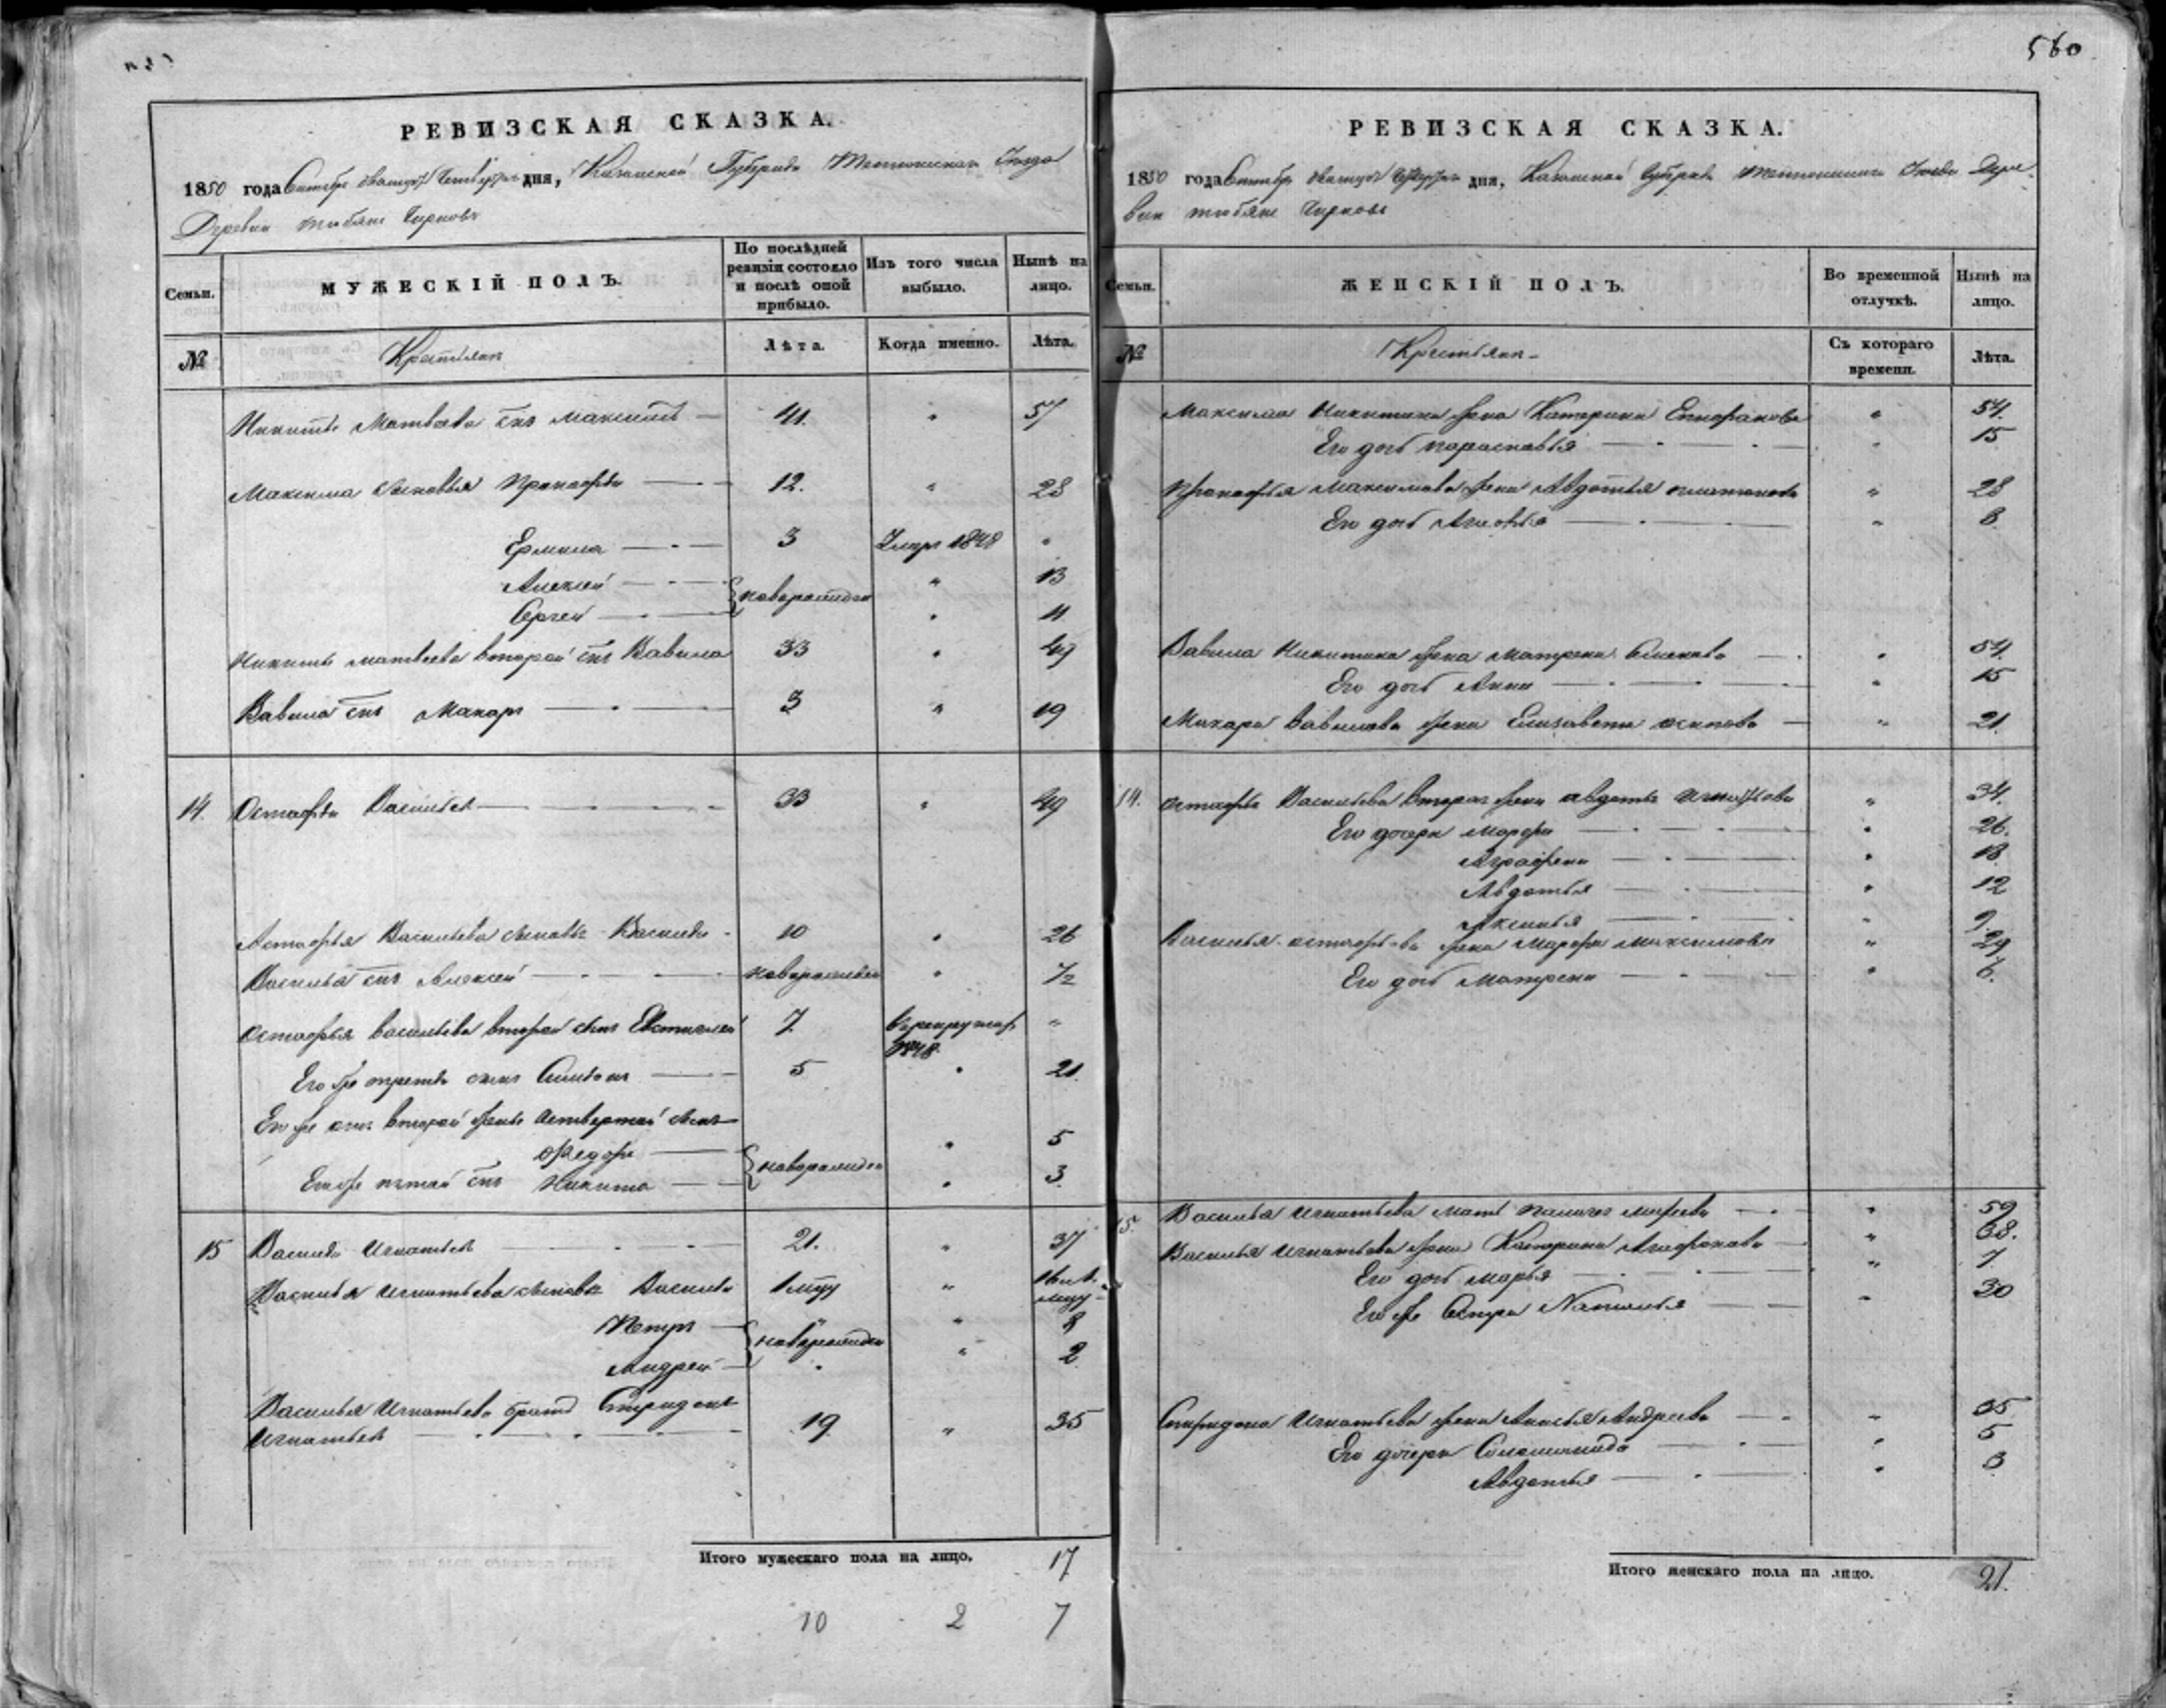 560
РЕВИЗСКАЯ СКАЗКА.
1850 года Сентября дня, Казанской Губернии Тетюшскаго Уезда
Деревни
Семьи.
МУЖЕСКІЙ ПОЛЪ.
По послѣдней ревизіи состояло и послѣ оной прибыло.
Изъ того числа выбыло.
Нынѣ на лицо.
№
Крестьян
Лѣта.
Когда именно.
Лѣта.
Никиты Матвеева сынъ Максимъ 41. " 57
Максима сыновья Прокофей 12. " 28
Ермила 3 Умеръ 1848 "
Алексей новорожден " 13
Сергей " 11
Никиты Матвеева второй сынъ Вавила 33 " 49
Вавила сынъ Макаръ 3 " 19
14. Остафей Васильев 33 " 49
Астафья Васильева сыновья Василей 10 " 26
Василья сынъ Алексей новорожден " 1/2
Остафья Васильева второй сынъ 7 в рекруты "
1848
Его же третей сынъ Симеон 5 " 21.
Его же от второй жены четвертой сынъ
Федоръ новорожден " 5
Его же пятой сынъ Никита " 3.
15 Василей Игнатьев 21. " 37
Василья Игнатьева сыновья Василей 1 мцу " 16 л. 1 мцу
Петръ новорожден " 8
Андрей " 2
Василья Игнатьева братъ Спиридонъ
Игнатьев 19 " 35
Итого мужескаго пола на лицо. 17
10 2 7
РЕВИЗСКАЯ СКАЗКА.
1850 года Сентября дня, Казанской Губернии Тетюшскаго Уезда Дере
вни
Семьи.
ЖЕНСКІЙ ПОЛЪ.
Во временной отлучкѣ.
Нынѣ на лицо.
№
Крестьян
Съ котораго времени.
Лѣта.
Максима Никитина жена Катерина " 54.
Его дочь Парасковья " 15
Прокофья Максимова жена Авдотья " 28
Его дочь " 8
Вавила Никитина жена Матрена " 54.
Его дочь Анна " 15
Макара Вавилова жена Елизавета Осипова " 21
14. Остафья Васильева вторая жена Авдотья Игнатьева " 34.
Его дочери Марфа " 26.
Аграфена " 18
Авдотья " 12
Аксинья " 9.
Василья Остафьева жена Марфа Максимова " 29
Его дочь Матрена " 6.
15. Василья Игнатьева мать " 59
Василья Игнатьева жена Катерина Агафонова " 38.
Его дочь Марья " 7
Его же сестра Наталья " 30
Спиридона Игнатьева жена Андреева " 35
Его дочери Соломонида " 5
Авдотья " 3
Итого женскаго пола на лицо. 21.